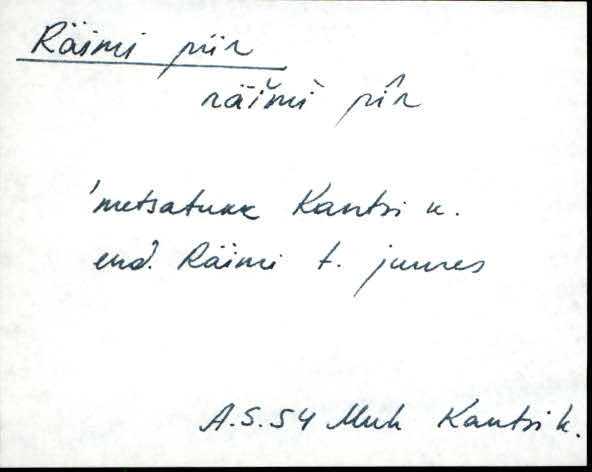 Räimi piir
räĭmĭ pîr
'metsatukk Kantsi k.
end. Räimi t. juures
A.S.54 Muh Kantsi k.